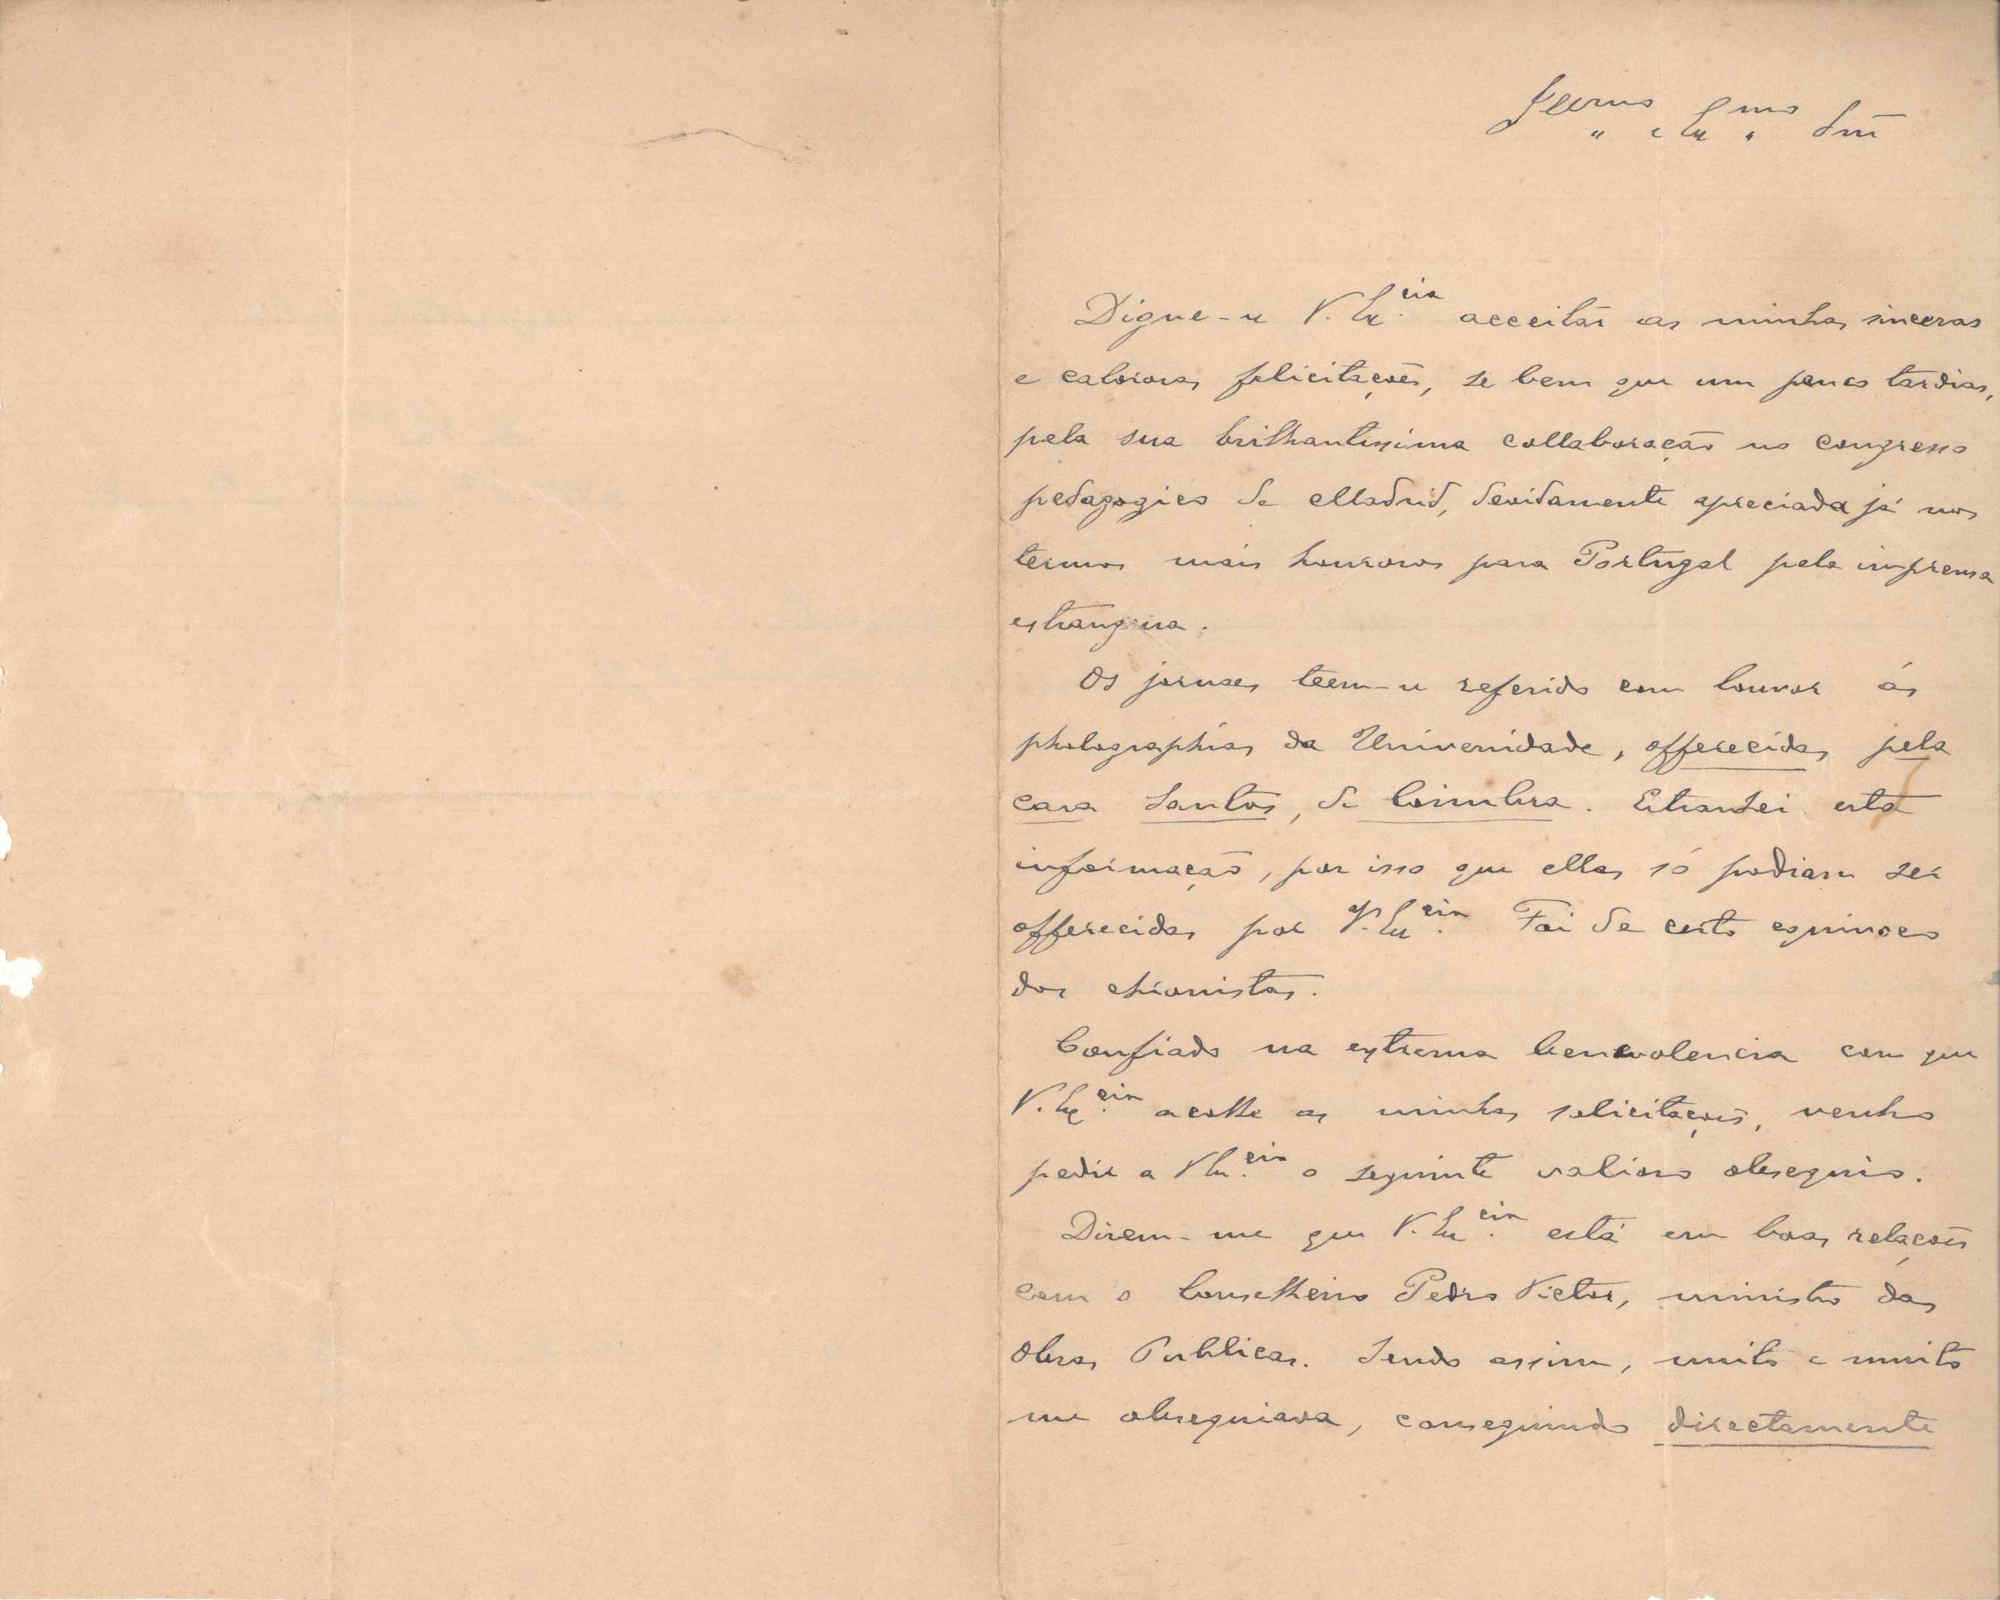 Illmo e Exmo Snr
Digne-se V. Excia acceitar as minhas sinceras
e calorosas felicitações, se bem que um pouco tardias,
pela sua brilhantissima collaboração no congresso
pedagogico de Madrid, devidamente apreciada já nos
termos mais honrosos para Portugal pela imprensa
estrangeira.
Os jornaes teem-se referido com louvor ás
photographias da Universidade, offerecidas pela
casa Santos, de Coimbra. Extranhei esta
informação, por isso que ellas só podiam ser
offerecidas por V. Excia. Foi de certo equivoco
dos chronistas.
Confiado na extrema benevolencia com que
V. Excia acolhe as minhas solicitações, venho
pedir a V Excia o seguinte valioso obsequio.
Dizem-me que V. Excia está em boas relações
com o Conselheiro Pedro Victor, ministro das
Obras Publicas. Sendo assim, muito e muito
me obsequiava, conseguindo directamente